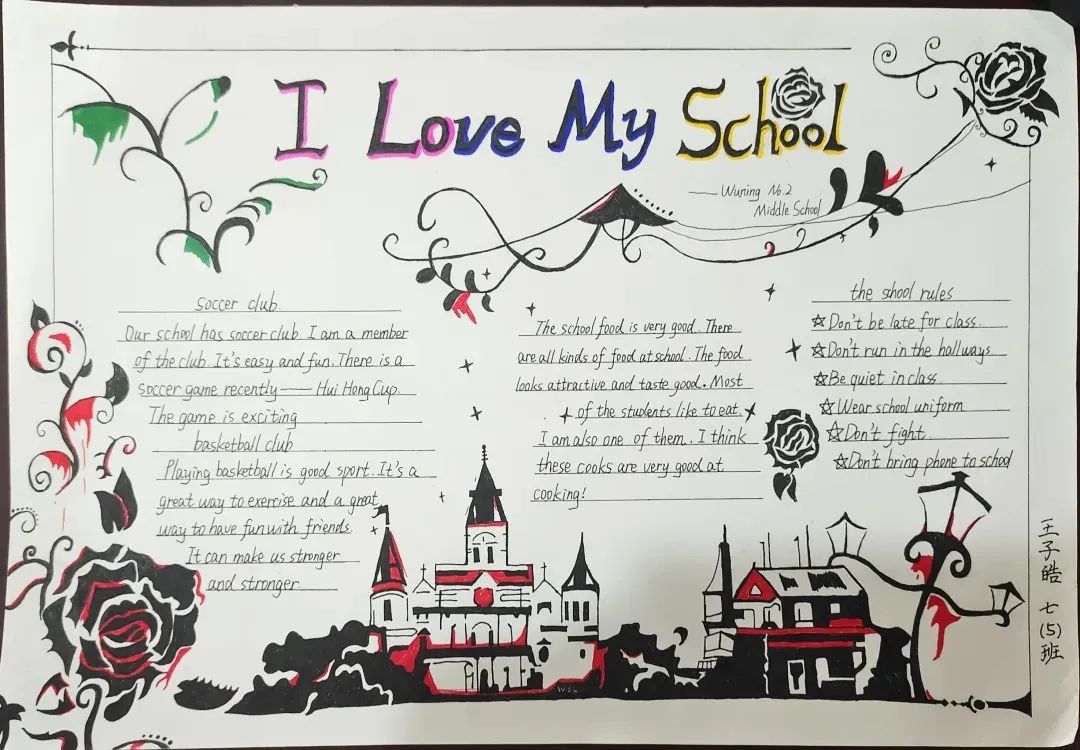 I Love My School
——Wuning No.2
Middle School
Soccer club.
Our school has soccer club. I am a member
of the club. It's easy and fun. There is a
soccer game recently—— Hui Hong Cup.
The game is exciting
basketball club
Playing basketball is good sport. It's a
great way to exercise and a great
way to have fun with friends.
It can make us stronger
and stronger.
The school food is very good. There
are all kinds of food at school. The food
looks attractive and taste good. Most
of the students like to eat.
I am also one of them. I think
these cooks are very good at
cooking!
the shool rules
☆Don't be late for class.
☆Don't run in the hallways
☆Be quiet in class.
☆Wear school uniform
☆Don't fight.
☆Don't bring phone to school
王子皓 七(5)班